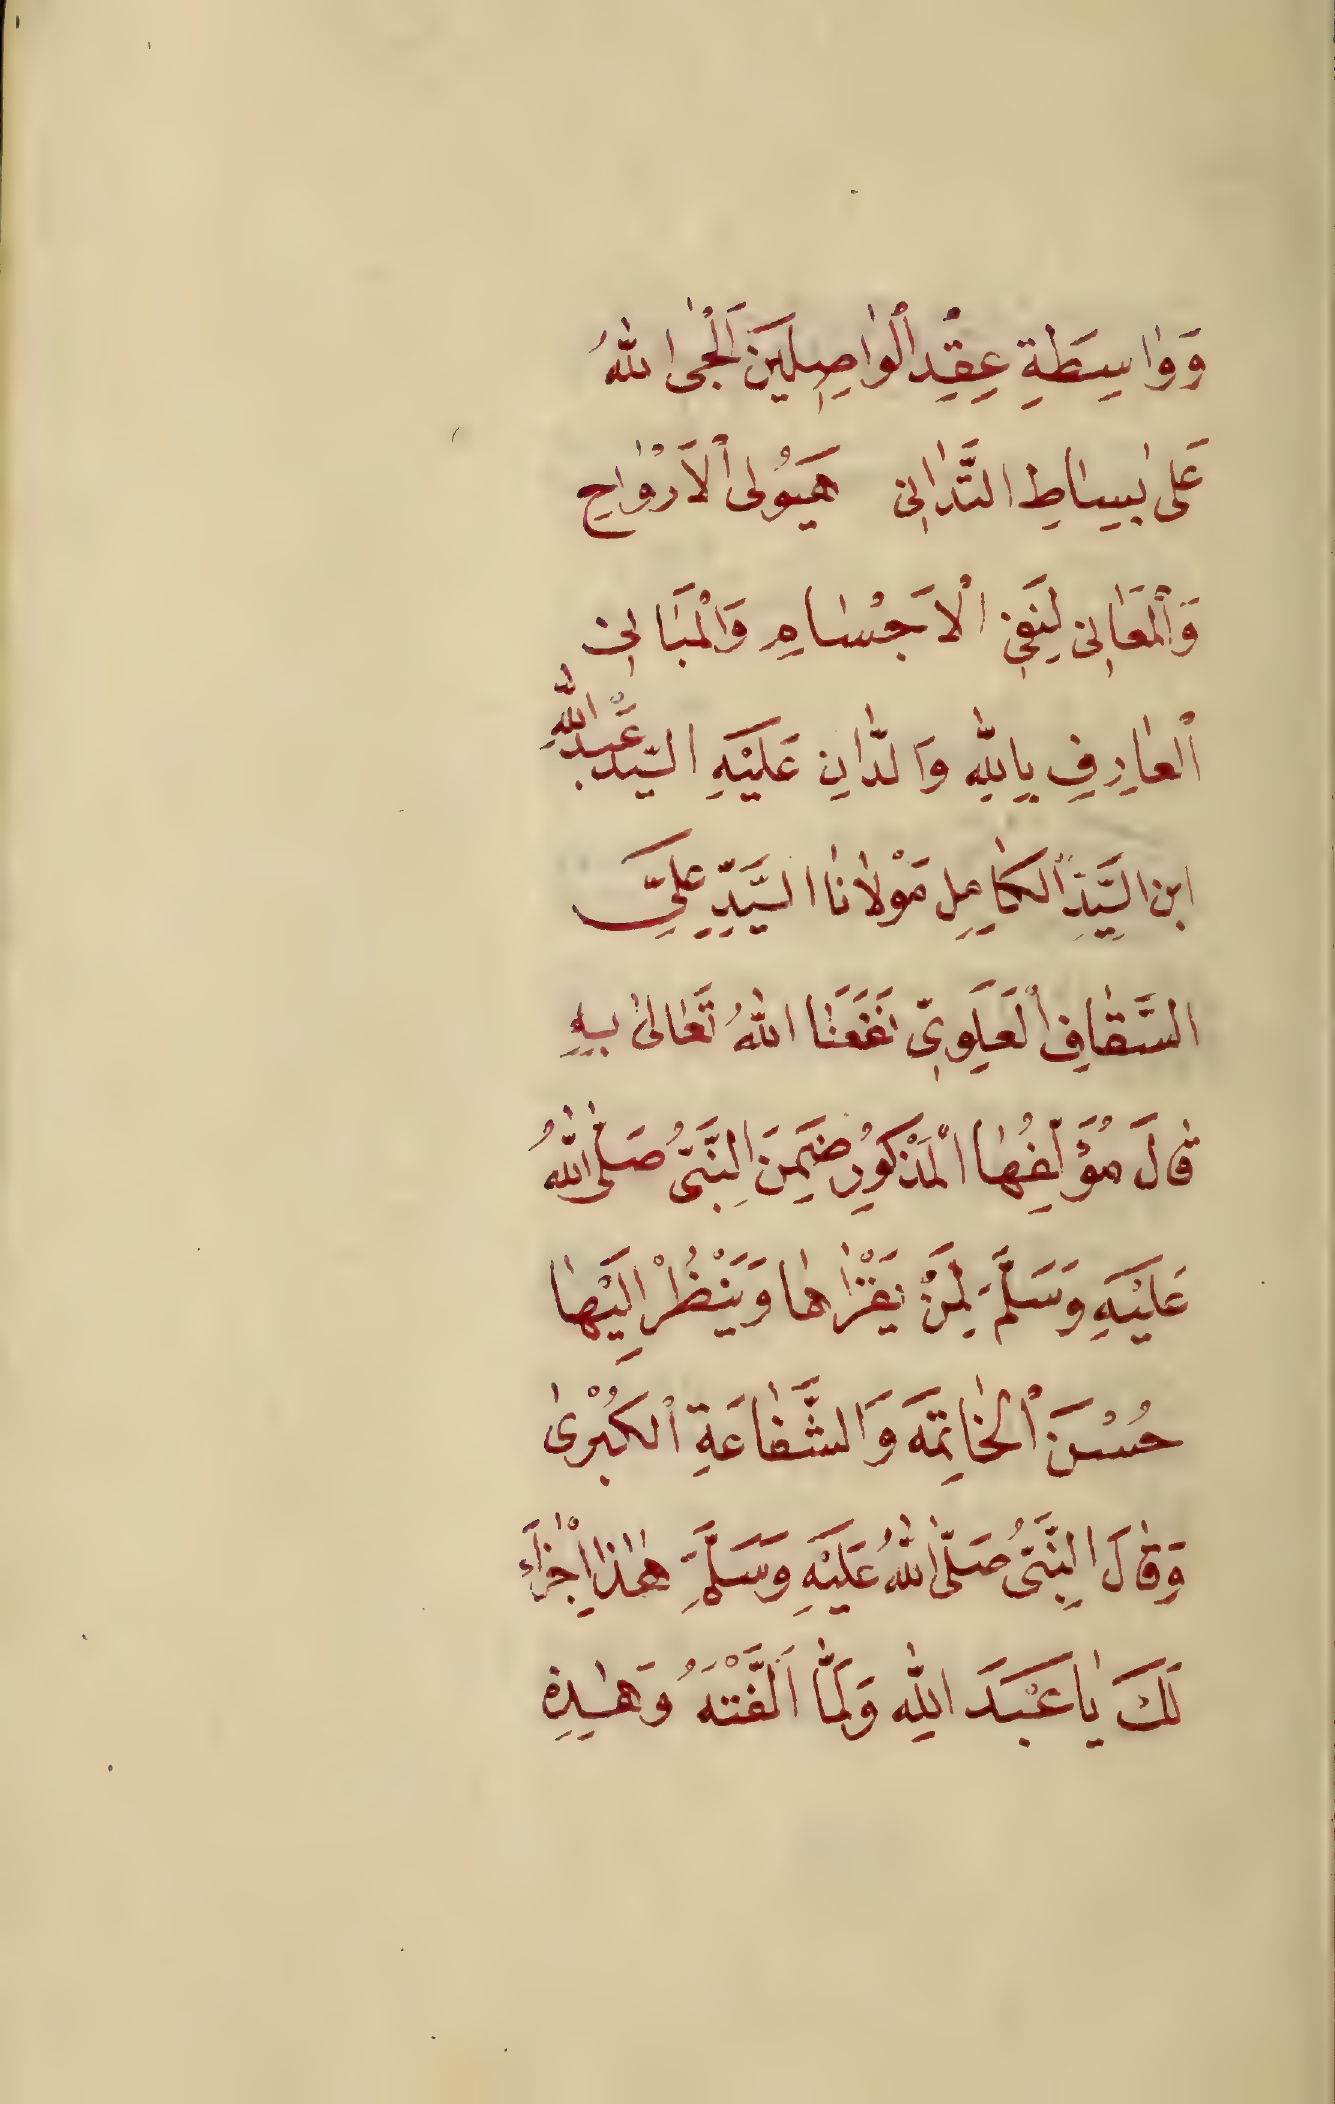 وَوٰاسِطَةِ عِقْدِ الْوٰاصِلِينَ اَلْجٰى اللّٰهُ
عَلى بِسٰاطِ التَّدٰانِى هَيُولَى الْاَرْوٰاحِ
وَالْمَعٰانِى لِنَفْىِ الْاَجْسٰامِ وَالْمَبٰانِى
الْعٰارِفِ بِاللّٰهِ وَالدّٰانِ عَلَيْهِ السَّيِّد عَبْدِ اللّٰهِ
ابن السَّيِّدِ الْكٰامِلِ مَوْلٰانٰا السَّيِّدِ عَلِىِّ
السَّقٰافِ الْعَلَوِىِّ نَفَعَنٰا اللّٰهُ تَعٰالىٰ بِهِ
قٰالَ مُؤَلِّفُهٰا الْمَذْكُورُ ضَمِنَ النَّبِىُّ صَلَّى اللّٰهُ
عَلَيْهِ وَسَلَّمَ لِمَنْ يَقْرٰاهٰا وَيَنْظُرْ اِلَيْهٰا
حُسْنَ الْخٰاتِمَة وَالشَّفٰاعَةِ الْكُبْرىٰ
وَقٰالَ النَّبِىُّ صَلَّى اللّٰهُ عَلَيْهِ وَسَلَّمَ هٰذٰا جْزٰآء
لَكَ يٰا عَبْدَ اللّٰهِ وَلَمّٰا اَلَّفْتَهُ وَهٰذِهِ